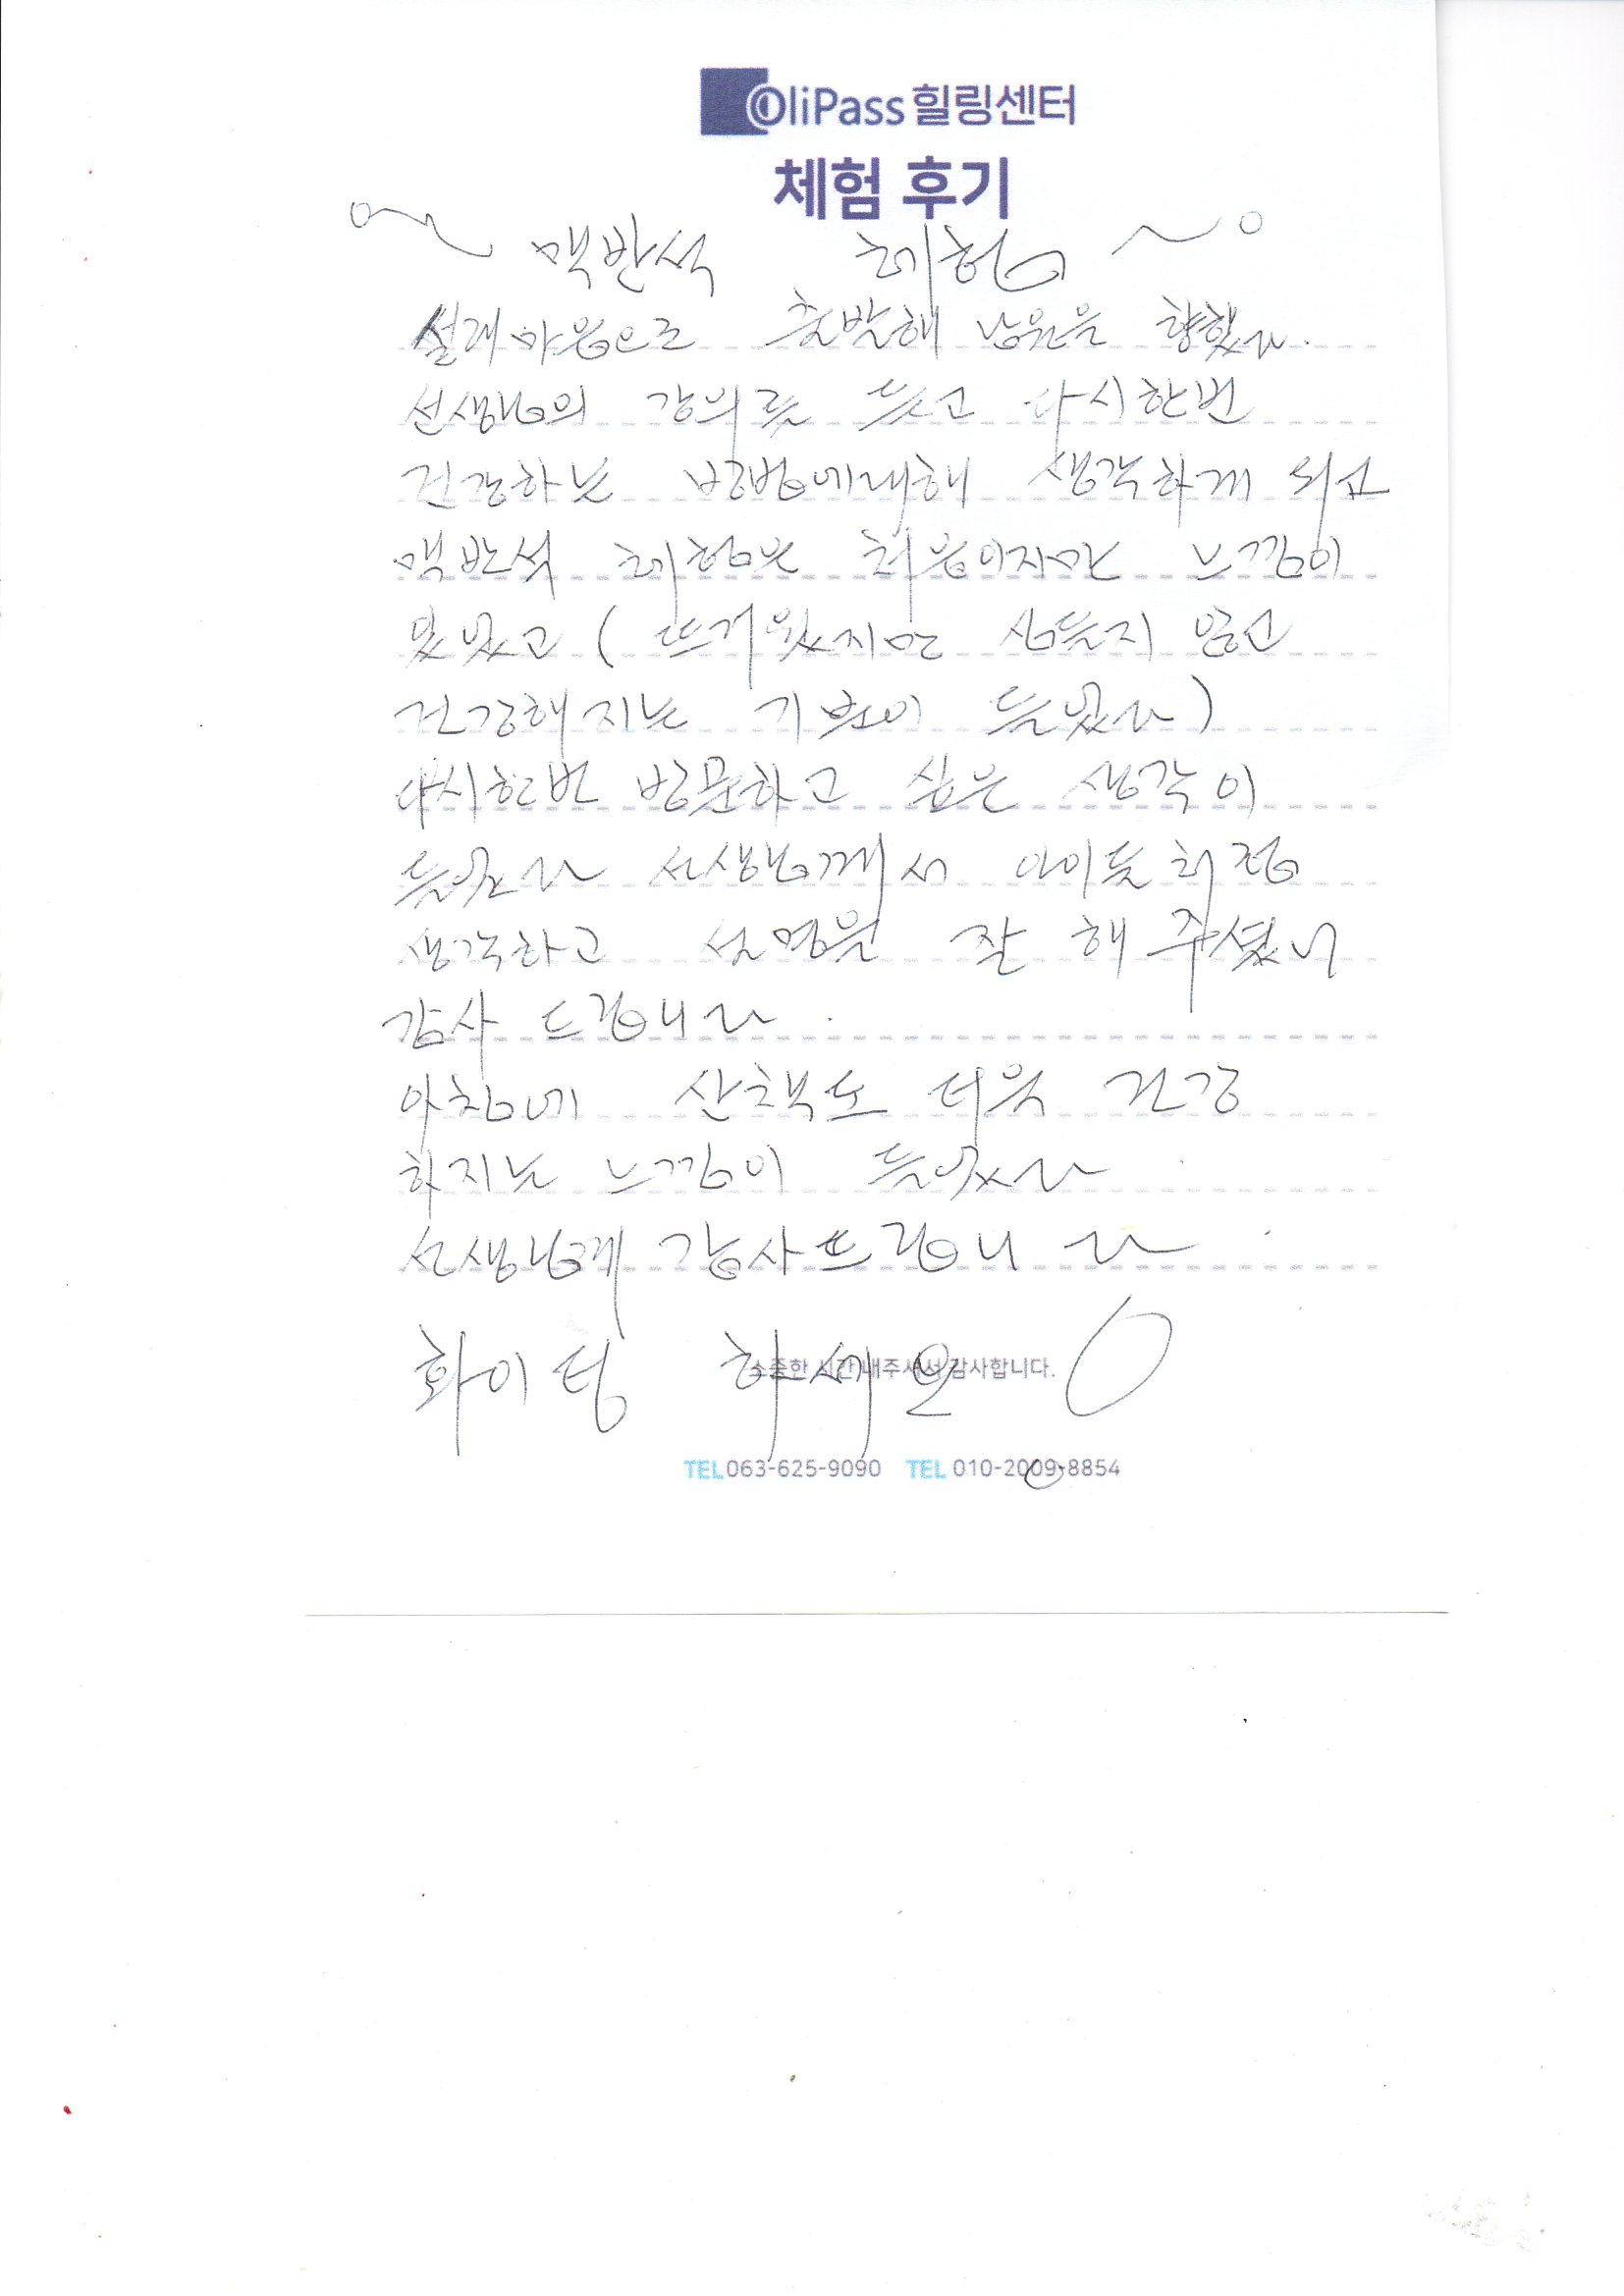 OliPass 힐링센터
체험 후기
맥반석 체험
설레 마음으로 출발해 남원을 향했다.
선생님의 강의를 듣고 다시한번
건강하는 방법에대해 생각하게 되고
맥반석 체험은 처음이지만 느낌이
있었고 ( 뜨거웠지만 힘들지 않고
건강해지는 기분이 들었다)
다시한번 방문하고 싶은 생각이
들었다 선생님께서 아이들 입장
생각하고 설명을 잘 해 주셨니
감사 드립니다.
아침에 산책도 더욱 건강
하지는 느낌이 들었다
선생님게 감사드립니다.
화이팅 하세요
소중한 시간 내주셔서 감사합니다.
TEL 063-625-9090 TEL 010-2009-8854